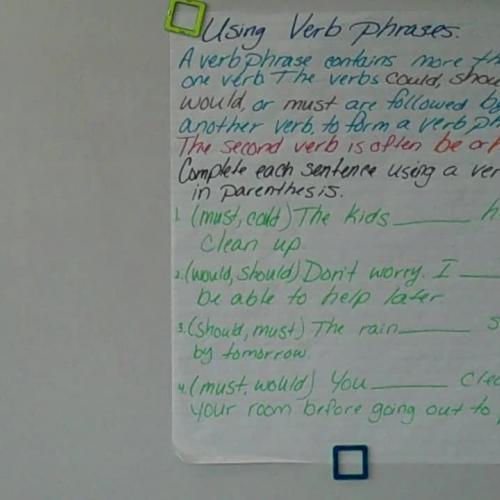 Using Verb phrases.
A verb phrase contains more
one verb. The verbs could,
would, or must are followed
another verb, to form a verb
The second verb is often be or
Complete each sentence using a
in parenthesis.
1. (must, could) The kids ______
Clean up.
2. (would, should) Don't worry. I ___
be able to help later
3. (should, must) The rain ______
by tomorrow.
4. (must, would) You ______
your room before going out to